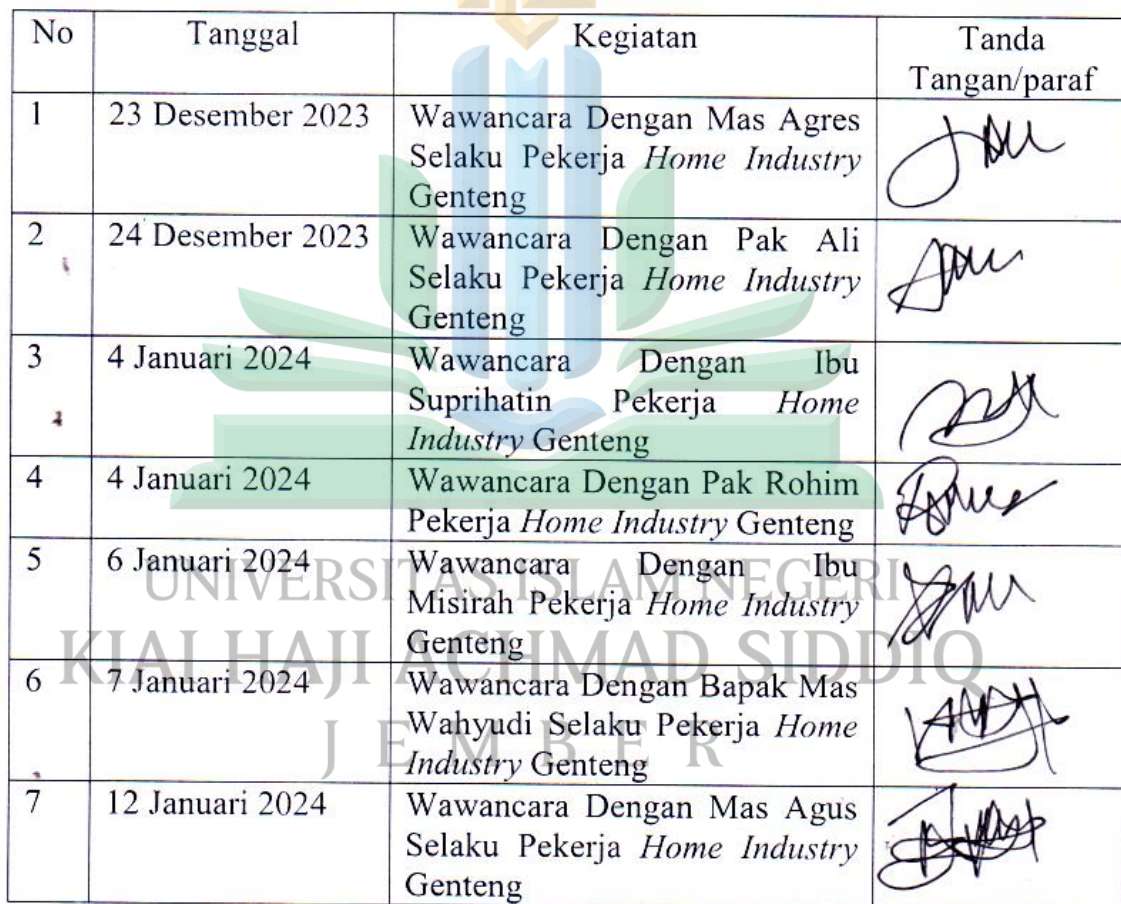 No Tanggal Kegiatan Tanda
Tangan/paraf
1 23 Desember 2023 Wawancara Dengan Mas Agres
Selaku Pekerja Home Industry
Genteng
2 24 Desember 2023 Wawancara Dengan Pak Ali
Selaku Pekerja Home Industry
Genteng
3 4 Januari 2024 Wawancara Dengan Ibu
Suprihatin Pekerja Home
Industry Genteng
4 4 Januari 2024 Wawancara Dengan Pak Rohim
Pekerja Home Industry Genteng
5 6 Januari 2024 Wawancara Dengan Ibu
Misirah Pekerja Home Industry
Genteng
6 7 Januari 2024 Wawancara Dengan Bapak Mas
Wahyudi Selaku Pekerja Home
Industry Genteng
7 12 Januari 2024 Wawancara Dengan Mas Agus
Selaku Pekerja Home Industry
Genteng
UNIVERSITAS ISLAM NEGERI
KIAI HAJI ACHMAD SIDDIQ
JEMBER